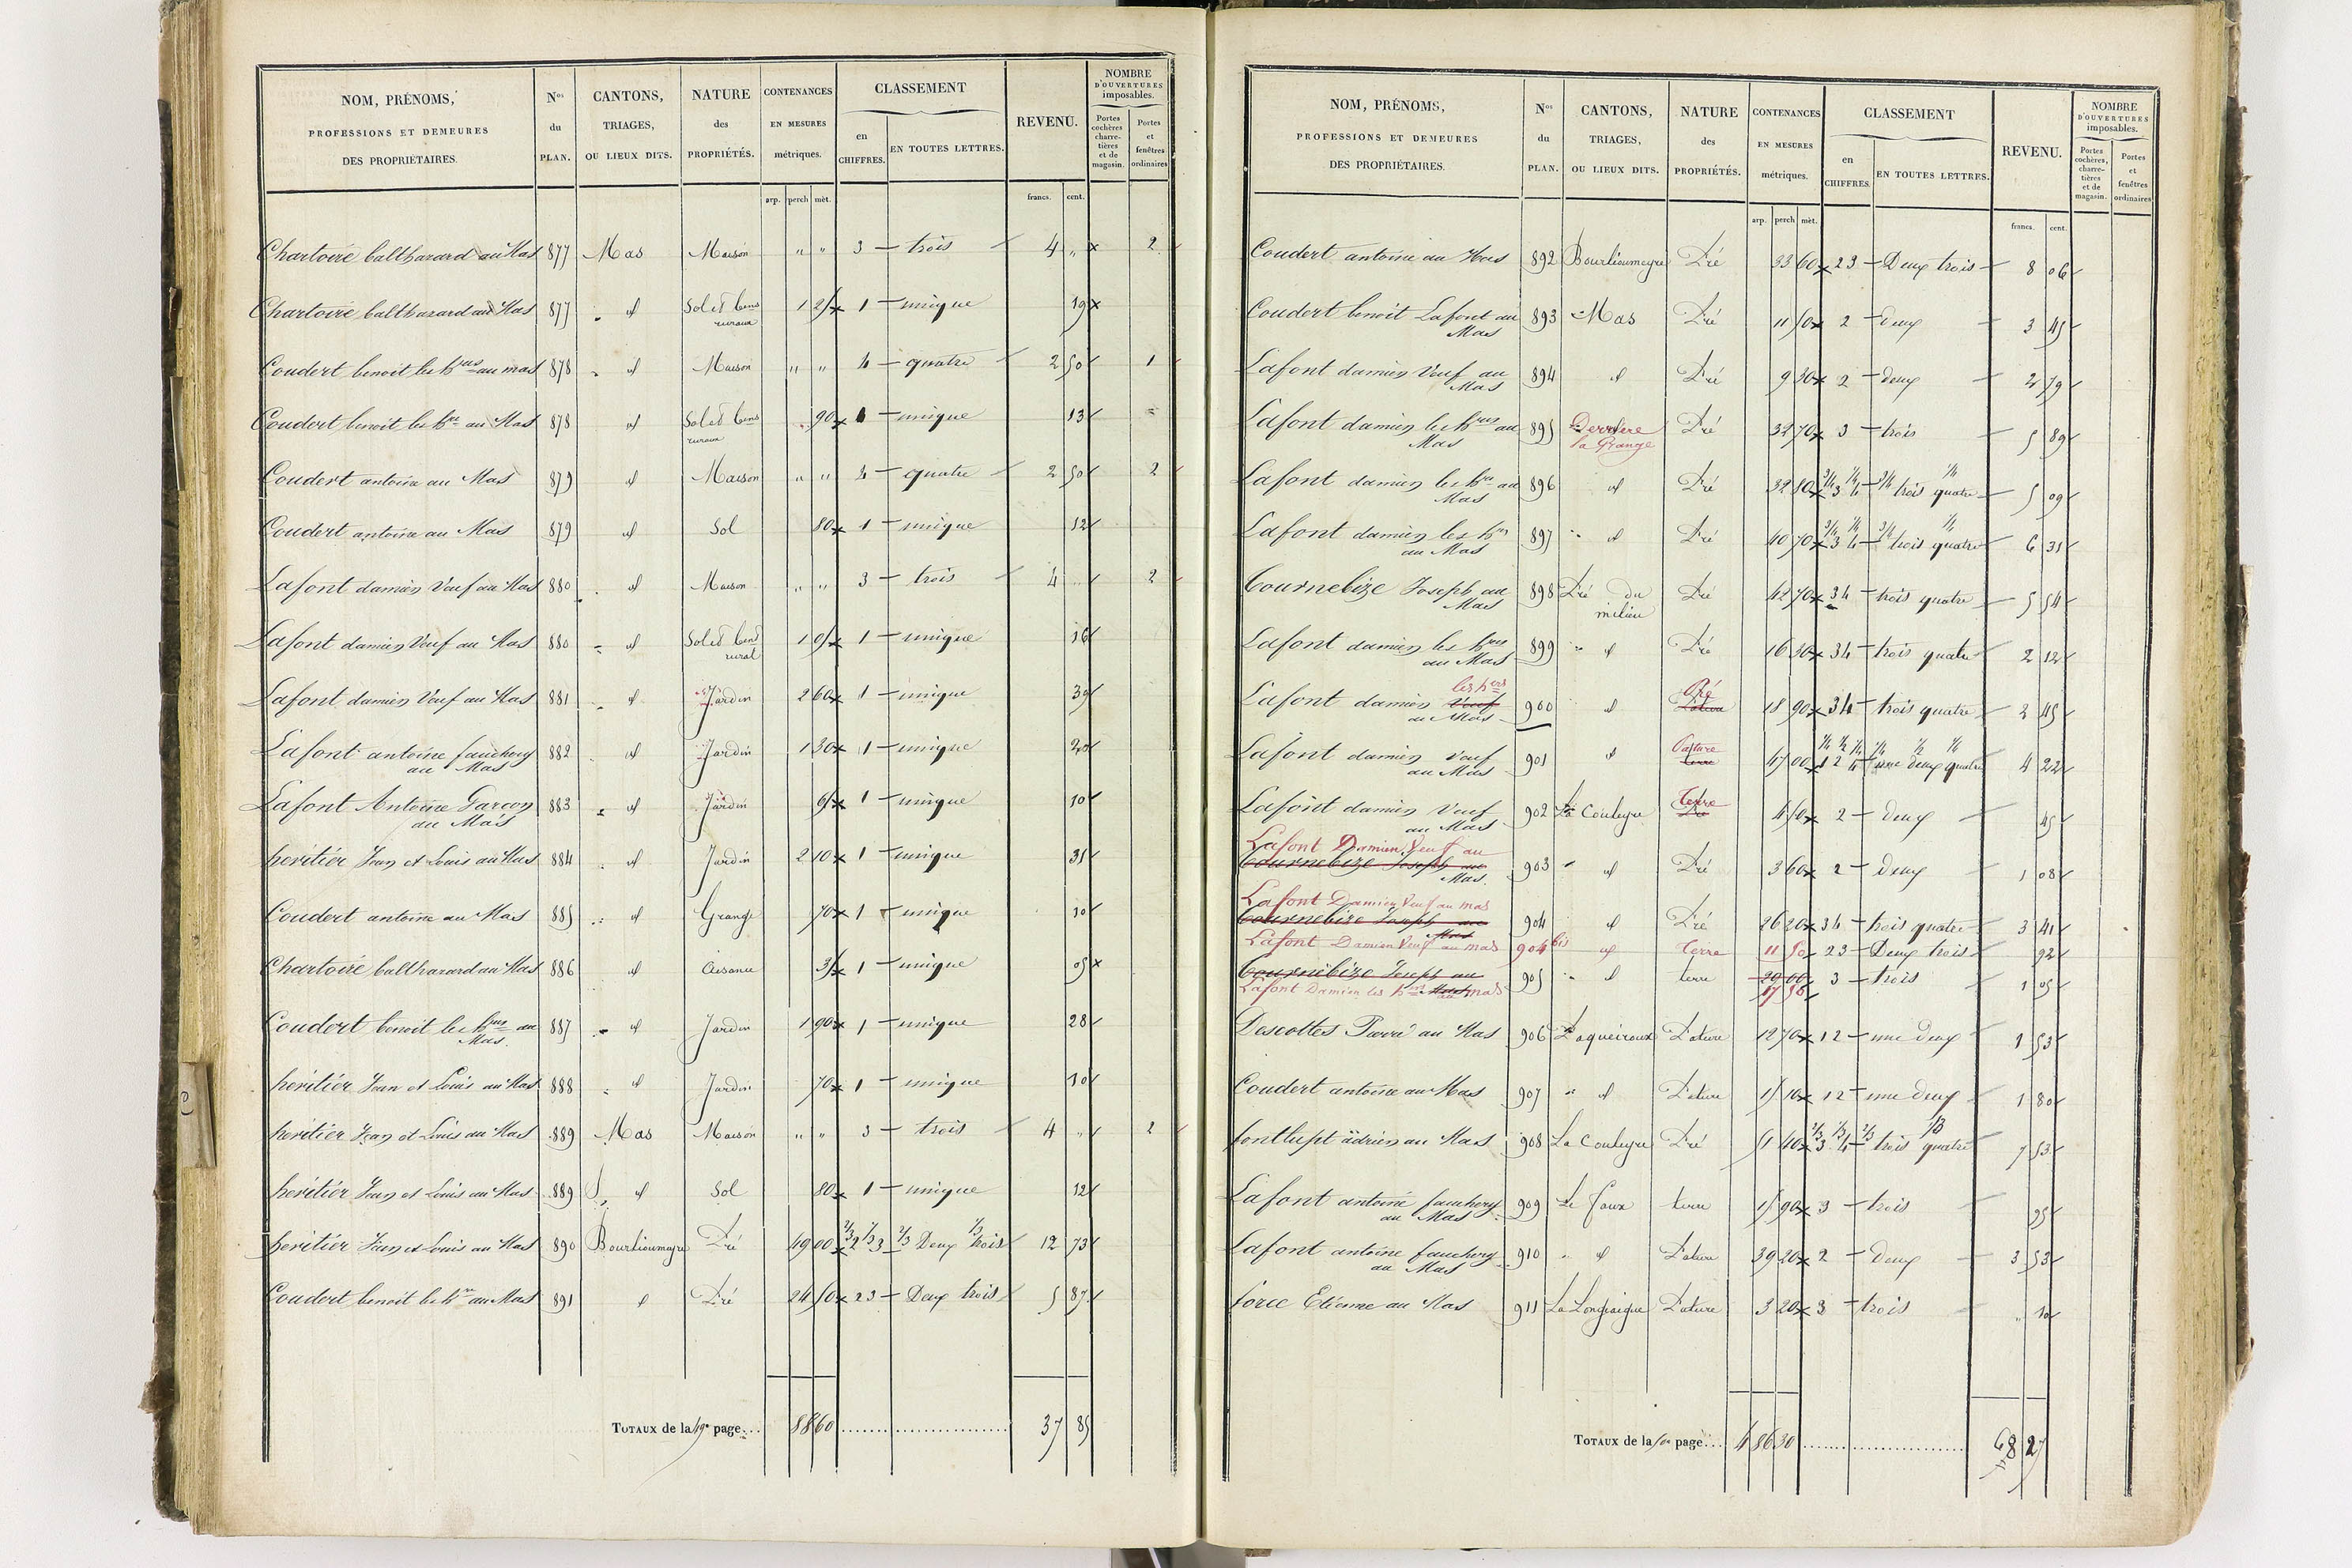 NOM, PRÉNOMS, PROFESSIONS ET DEMEURES DES PROPRIÉTAIRES. Nos du PLAN. CANTONS, TRIAGES, OU LIEUX DITS. NATURE des PROPRIÉTÉS. CONTENANCES EN MESURES métriques. CLASSEMENT en CHIFFRES. EN TOUTES LETTRES. REVENU. NOMBRE D'OUVERTURES imposables. Portes cochères charretières et de magasin. Portes et fenêtres ordinaires
arp. perch mèt. francs. cent.
Chartoire balthazard au Mas 877 Mas Maison " " 3 - trois 4 " x 2
Chartoire balthazard au Mas 877 id Sol et bens ruraux 1 25 x 1 - unique 19 x
Coudert benoit les hres au mas 878 id Maison " " 4 - quatre 2 50 1
Coudert benoit les hres au Mas 878 id Sol et bens ruraux 90 x 1 - unique 13
Coudert antoine au Mas 879 id Maison " " 4 - quatre 2 50 2
Coudert antoine au Mas 879 id Sol 80 x 1 - unique 12
Lafont damien Veuf au Mas 880 id Maison " " 3 - trois 4 " 2
Lafont damien Veuf au Mas 880 id Sol et bens rural 1 05 x 1 - unique 16
Lafont damien Veuf au Mas 881 id Jardin 2 60 x 1 - unique 39
Lafont antoine fauchery au Mas 882 id Jardin 1 30 x 1 - unique 20
Lafont Antoine Garçon au Mas 883 id Jardin 65 x 1 - unique 10
heritiér Jean et Louis au Mas 884 id Jardin 2 10 x 1 - unique 31
Coudert antoine au Mas 885 id Grange 70 x 1 - unique 10
Chartoire balthazard au Mas 886 id Aisance 35 x 1 - unique 05 x
Coudert benoit les hres au Mas. 887 id Jardin 1 90 x 1 - unique 28
héritiér Jean et Louis au Mas 888 id Jardin 70 x 1 - unique 10
heritiér Jean et Louis au Mas 889 Mas Maison " " 3 - trois 4 " 2
heritiér Jean et Louis au Mas 889 id Sol 80 x 1 - unique 12
heritiér Jean et Louis au Mas 890 Bourlioumeyre Pré 49 00 x 2/3 2 1/3 3 - 2/3 Deux 1/3 trois 12 73
Coudert benoit les hres au Mas 891 id Pré 24 50 x 2 3 - Deux trois 5 87
TOTAUX de la 49e page... 88 60 37 85
NOM, PRÉNOMS, PROFESSIONS ET DEMEURES DES PROPRIÉTAIRES. Nos du PLAN. CANTONS, TRIAGES, OU LIEUX DITS. NATURE des PROPRIÉTÉS. CONTENANCES EN MESURES métriques. CLASSEMENT en CHIFFRES. EN TOUTES LETTRES. REVENU. NOMBRE D'OUVERTURES imposables. Portes cochères, charretières et de magasin. Portes et fenêtres ordinaires
arp. perch mèt. francs. cent.
Coudert antoine au Mas 892 Bourlioumeyre Pré 33 60 x 2 3 - Deux trois 8 06
Coudert benoit Lafont au Mas 893 Mas Pré 11 50 x 2 - deux 3 45
Lafont damien Veuf au Mas 894 id Pré 9 30 x 2 - deux 2 79
Lafont damien les hres au Mas 895 Derriere la Grange Pré 32 70 x 3 - trois 5 89
Lafont damien les hres au Mas 896 id Pré 32 80 x 3/4 3 1/4 4 - 3/4 trois 1/4 quatre 5 09
Lafont damien les hres au Mas 897 id Pré 40 70 x 3/4 3 1/4 4 - 3/4 trois 1/4 quatre 6 31
Tournebize Joseph au Mas 898 Pré du milieu Pré 42 70 x 3 4 - trois quatre 5 54
Lafont damien les hres au Mas 899 id Pré 16 30 x 3 4 - trois quatre 2 12
Lafont damien Veuf les hers au Mas 900 id Pature Pré 18 90 x 3 4 - trois quatre 2 45
Lafont damien Veuf au Mas 901 id terre Pature 47 00 x 1/4 1 1/2 2 1/4 4 - 1/4 une 1/2 deux 1/4 quatre 4 22
Lafont damien Veuf au Mas 902 La Couleyre Pré Terre 4 50 x 2 - deux 45
Lafont Damien Veuf au
Tournebize Joseph au Mas. 903 id Pré 3 60 x 2 - deux 1 08
Lafont Damien Veuf au mas
Tournebize Joseph au Mas 904 id Pré 26 20 x 3 4 - trois quatre 3 41
Lafont Damien Veuf au mas 904 bis id Terre 11 50 2 3 - Deux trois 92
Tournebize Joseph au Mas 905 id terre 29 00 3 - trois 1 05
Lafont Damien les hres au mas 17 50
Descottes Pierre au Mas 906 Paqueiroux Pature 12 70 x 1 2 - une deux 1 53
Coudert antoine au Mas 907 id Pature 15 10 x 1 2 - une deux 1 80
fontlupt adrien au Mas 908 La Couleyre Pré 51 40 x 2/3 3 1/3 4 - 2/3 trois 1/3 quatre 7 53
Lafont antoine fauchery au Mas 909 Le faux terre 15 90 x 3 - trois 95
Lafont antoine fauchery au Mas 910 id Pature 39 20 x 2 - Deux 3 53
force Etienne au Mas 911 La Longeaigue Pature 3 20 x 3 - trois " 10
TOTAUX de la 50e page... 4 86 30 68 27